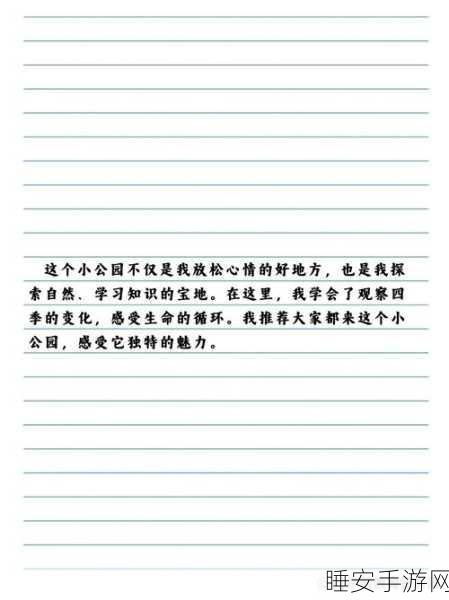 这个小公园不仅是我放松心情的好地方，也是我探
索自然、学习知识的宝地。在这里，我学会了观察四
季的变化，感受生命的循环。我推荐大家都来这个小
公园，感受它独特的魅力。
睡安手游网